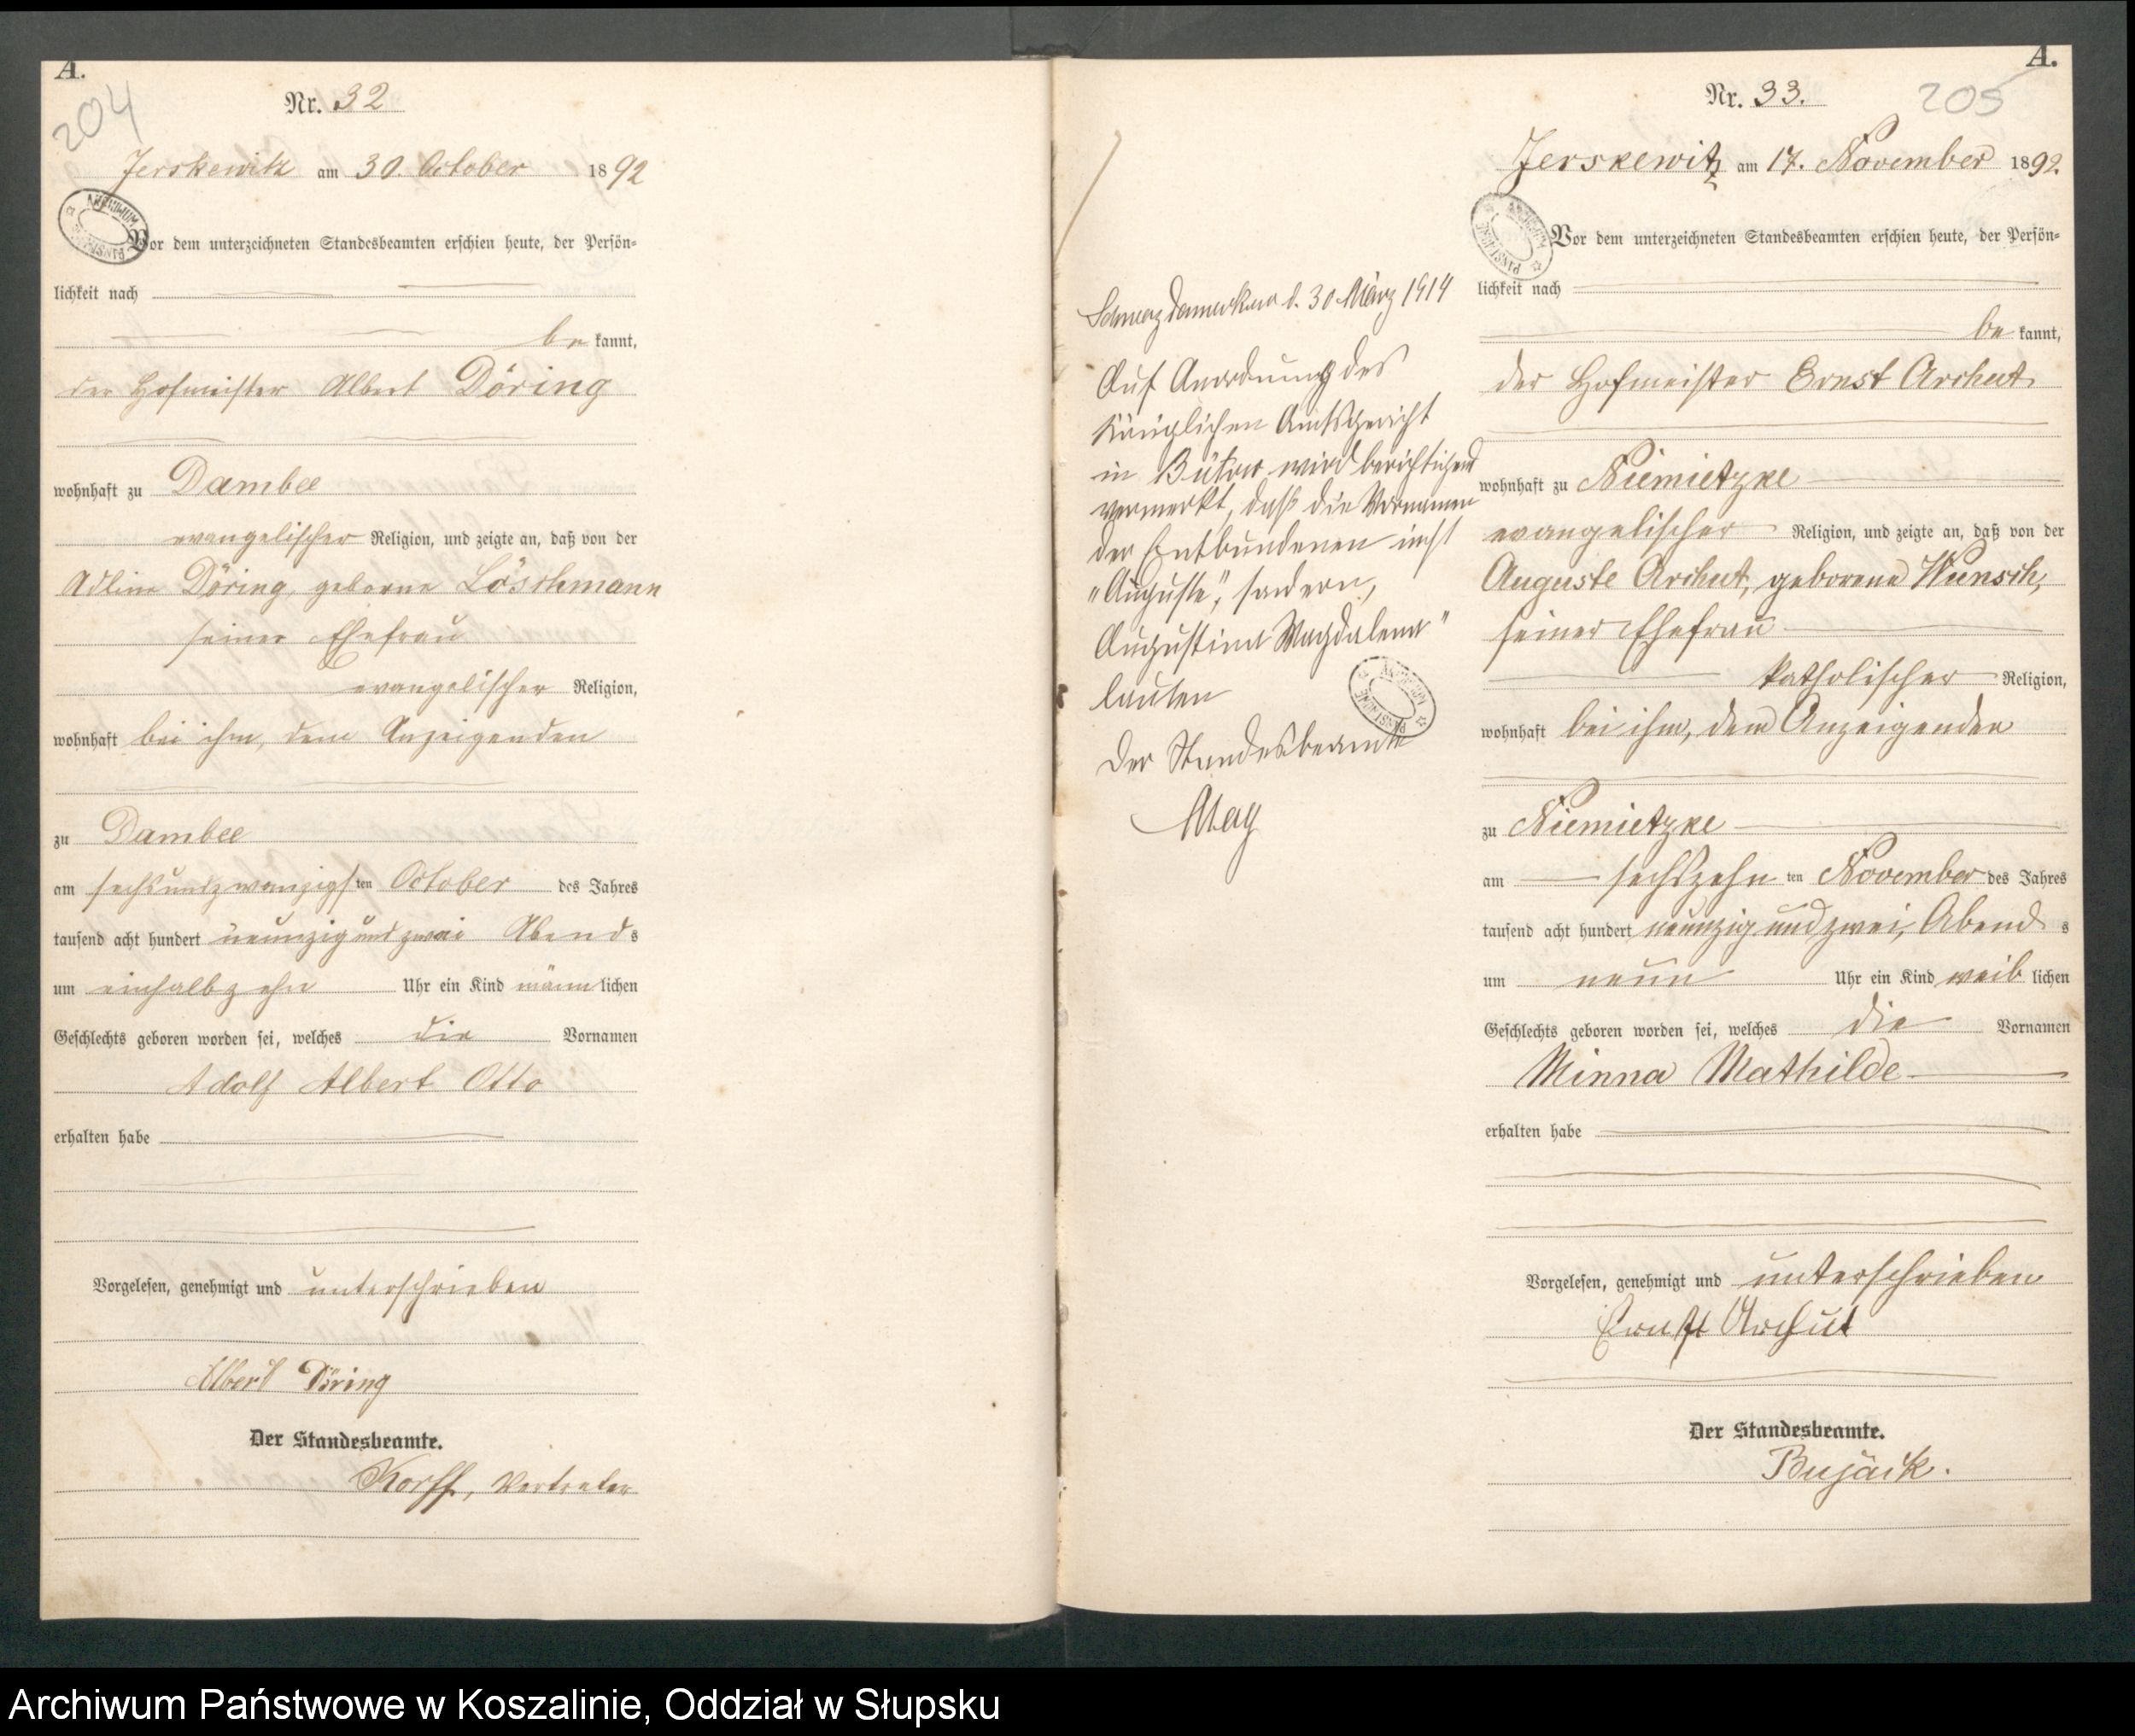 A.
204
Nr. 32
Jerskewitz am 30. October 1892
Vor dem unterzeichneten Standesbeamten erschien heute, der Persön-
lichkeit nach
be kannt,
der Hofmeister Albert Döring
wohnhaft zu Dambee
evangelischer Religion, und zeigte an, daß von der
Adline Döring, geborne Löschmann
seiner Ehefrau
evangelischer Religion,
wohnhaft bei ihm, dem Anzeigenden
zu Dambee
am sechsundzwanzigsten October des Jahres
tausend acht hundert neunzig und zwei Abends
um einhalbzehn Uhr ein Kind männlichen
Geschlechts geboren worden sei, welches die Vornamen
Adolf Albert Otto
erhalten habe
Vorgelesen, genehmigt und unterschrieben
Albert Döring
Der Standesbeamte.
Korff, Vertreter
Schwarz Damerkow d. 30 März 1914
Auf Anordnung des
Königlichen Amtsgericht
in Bütow wird berichtigend
vermerkt, daß die Vornamen
der Entbundenen nicht
"Auguste", sondern,
Augustina Magdalena"
lauten
Der Standesbeamte
May
A.
205
Nr. 33.
Jerskewitz am 17. November 1892.
Vor dem unterzeichneten Standesbeamten erschien heute, der Persön-
lichkeit nach
be kannt,
der Hofmeister Ernst Archut
wohnhaft zu Niemietzke
evangelischer Religion, und zeigte an, daß von der
Auguste Archut, geborene Wunsch,
seiner Ehefrau
katholischer Religion,
wohnhaft bei ihm, dem Anzeigenden
zu Niemietzke
am sechszehn ten November des Jahres
tausend acht hundert neunzig und zwei, Abends
um neun Uhr ein Kind weiblichen
Geschlechts geboren worden sei, welches die Vornamen
Minna Mathilde
erhalten habe
Vorgelesen, genehmigt und unterschrieben
Ernst Archut
Der Standesbeamte.
Bujack.
Archiwum Państwowe w Koszalinie, Oddział w Słupsku